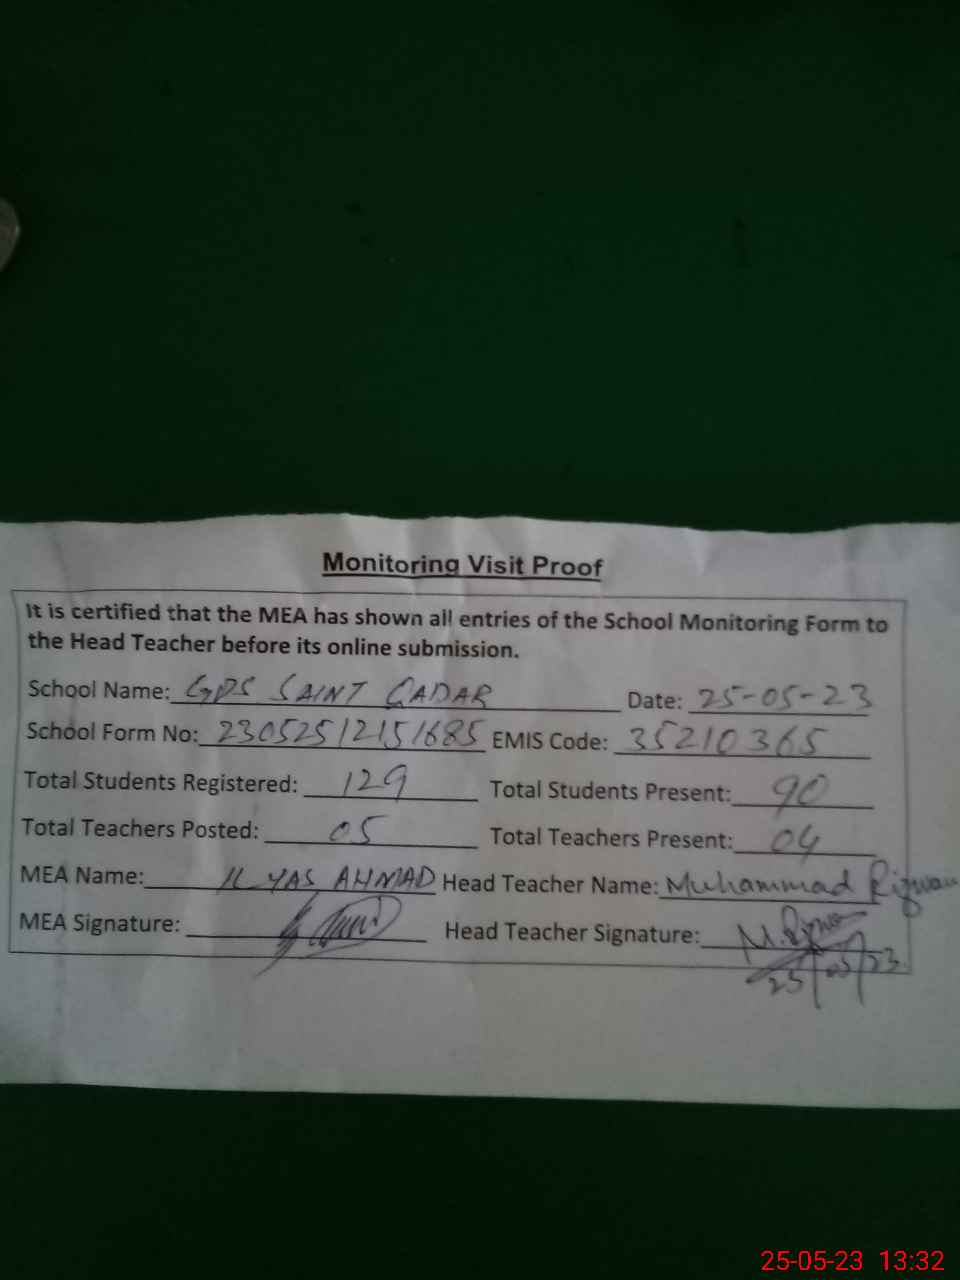 Monitoring Visit Proof
It is certified that the MEA has shown all entries of the School Monitoring Form to
the Head Teacher before its online submission.
School Name: GPS SAINT QADAR Date: 25-05-23
School Form No: 23052512151685 EMIS Code: 35210365
Total Students Registered: 129 Total Students Present: 90
Total Teachers Posted: 05 Total Teachers Present: 04
MEA Name: ILYAS AHMAD Head Teacher Name: Muhammad Rizwan
MEA Signature: Head Teacher Signature: M. Rizwan
25/05/23
25-05-23 13:32